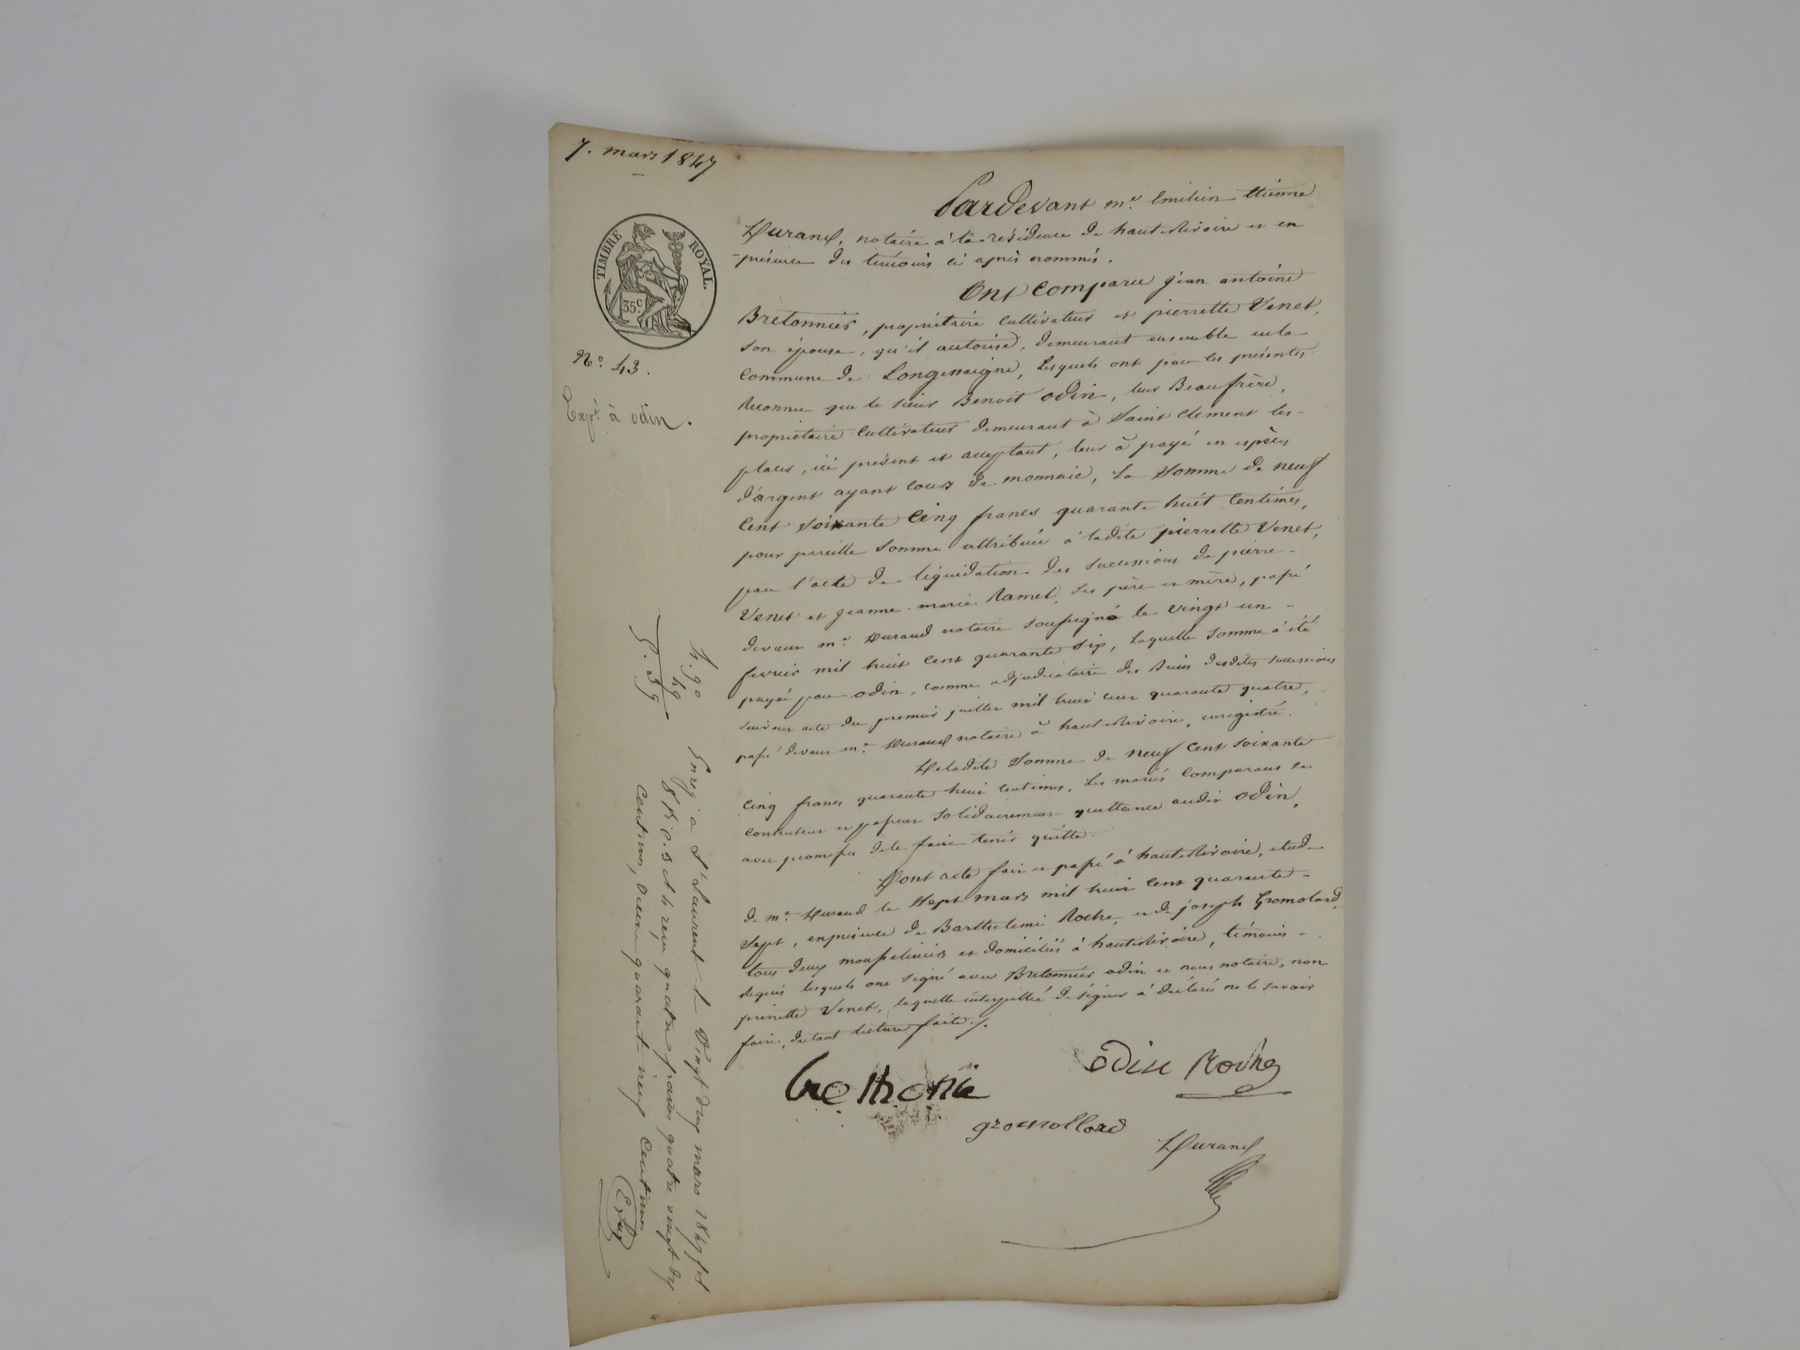 7. mars 1847
TIMBRE ROYAL.
35c.
No. 43.
Expé. à odin.
Pardevant me. Emilien Etienne
Durand, notaire à la résidence de haute-Rivoire et en
présence des témoins ci après nommés.
Ont comparu jean antoine
Bretonnier, propriétaire cultivateur et pierrette Venet,
son épouse, qu'il autorise, demeurant ensemble en la
commune de Longessaigne, Lesquels ont par les présentes
reconnu que le sieur Benoit odin, leur Beaufrère,
propriétaire cultivateur demeurant à Saint Clement les-
places, ici présent et acceptant, leur à payé en espèces
d'argent ayant cours de monnaie, la Somme de neuf
Cent soixante Cinq francs quarante huit Centimes,
pour pareille somme attribuée à ladite pierrette Venet,
par l'acte de liquidation des successions de pierre-
Venet et jeanne-marie Ramel, ses père et mère, passé
devant me. Durand notaire soussigné le vingt un-
fevrier mil huit cent quarante six, Laquelle somme à été
payée par odin, comme adjudicataire des Biens desdites successions
suivant acte du premier juillet mil huit cent quarante quatre,
passé devant me. Durand notaire à haute-Rivoire, enregistré.
De ladite Somme de neuf Cent soixante
Cinq francs quarante huit centimes, Les mariés Comparans se
contentent et passent solidairement quittance audit odin,
avec promesse de le faire tenir quitte.
Dont acte fait et passé à haute-Rivoire, etude
de me. Durand le Sept mars mil huit Cent quarante-
sept, en présence de Barthelemi Roche, et de joseph Gromolard,
tous deux mousseliniers et domiciliés à haute-Rivoire, témoins-
requis lesquels ont signé avec Bretonnier odin et nous notaire, non
pierrette Venet, laquelle interpellée de signer à déclaré ne le savoir
faire, de tout lecture faite./.
odin Roche
gromollard
Durand
4. 90
49
5. 39
Enreg. à St. Laurent le Vingt deux mars 1847 fol
8 Ro. c. 3 et 4 reçu quatre francs quatre vingt dix
centimes, decime quarante neuf centimes